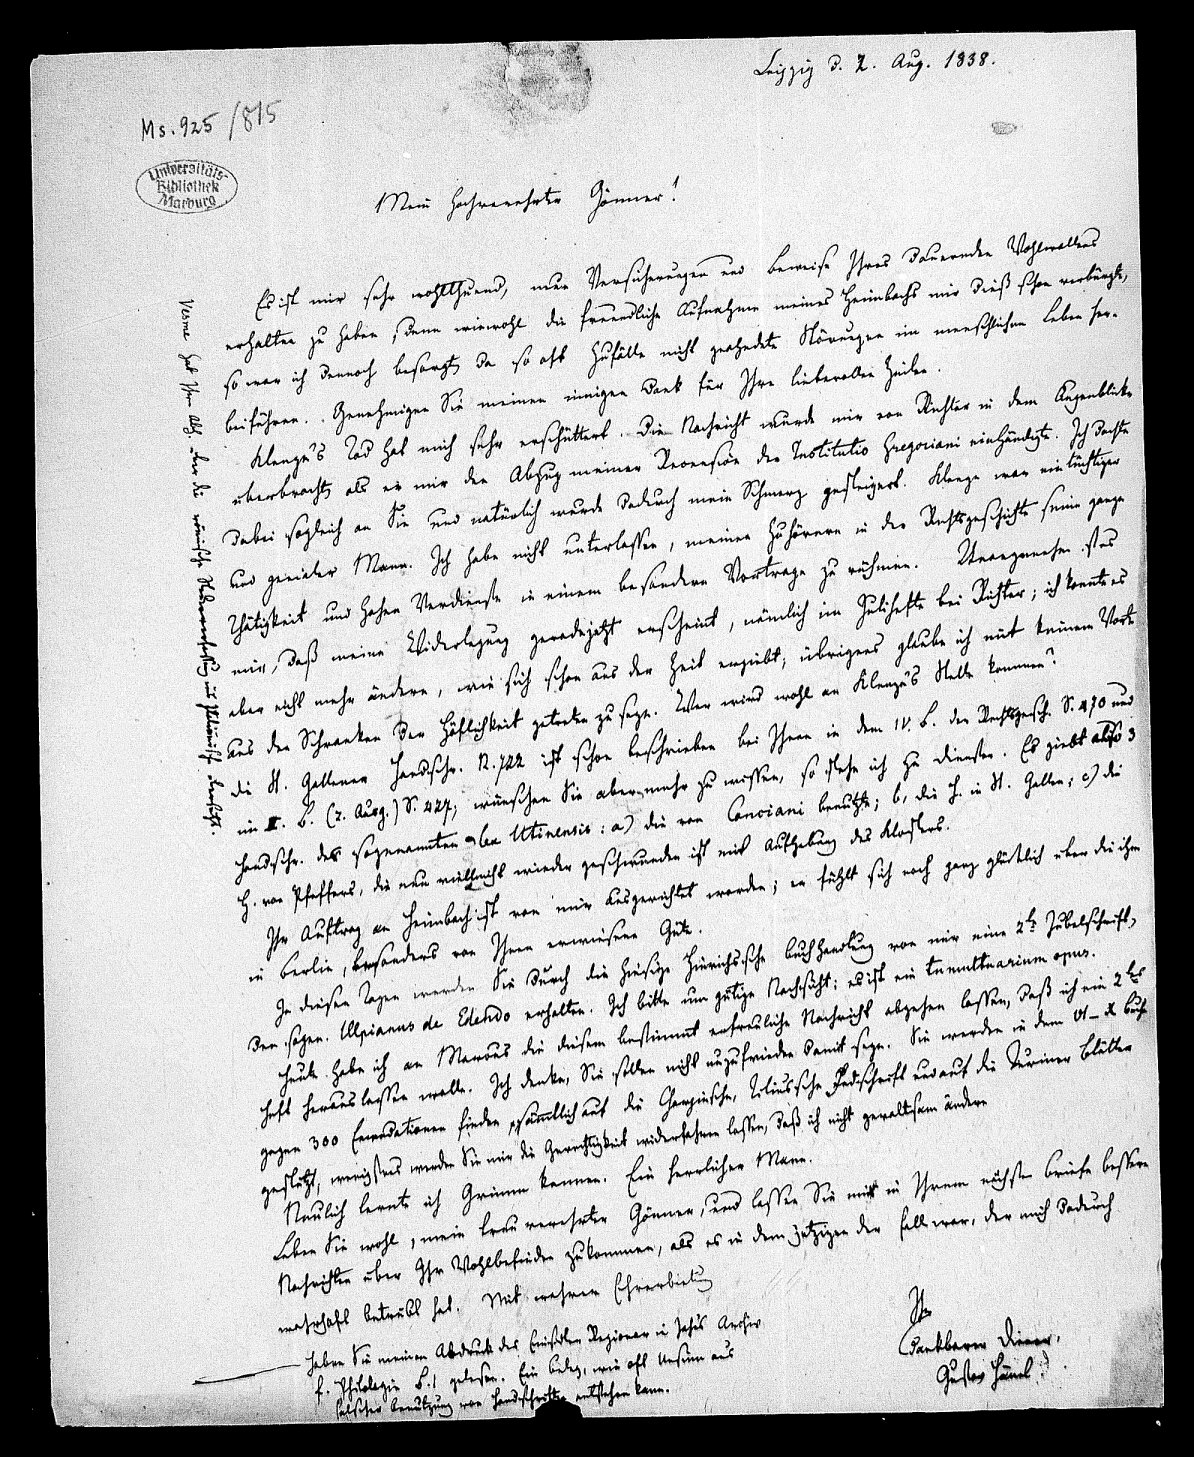 Leipzig d. 2. Aug. 1838.
Ms. 925/815
Universitäts-
Bibliothek
Marburg
Mein hochverehrter Gönner!
Es ist mir sehr wohlthuend, neue Versicherungen und Beweise Ihres dauernden Wohlwollens
erhalten zu haben, denn wiewohl die freundliche Aufnahme meines Heimbachs mir dieß schon verbürgte,
so war ich dennoch besorgt, da so oft Zufälle nicht geahndete Störungen im menschlichen Leben her-
beiführen. Genehmigen Sie meinen innigen Dank für Ihre liebevollen Zeilen.
Klenze's Tod hat mich sehr erschüttert. Die Nachricht wurde mir von Richter in dem Augenblicke
überbracht, als er mir den Abzug meiner Recension der Institutio Gregoriani einhändigte. Ich dachte
dabei sogleich an Sie und natürlich wurde dadurch mein Schmerz gesteigert. Klenze war ein tüchtiger
und genialer Mann. Ich habe nicht unterlassen, meinen Zuhörern in der Rechtsgeschichte seine ganze
Thätigkeit und hohen Verdienste in einem besondern Vortrage zu rühmen. Unangenehm ist es
mir, daß meine Widerlegung geradejetzt erscheint, nämlich im Julihefte bei Richter; ich konnte es
aber nicht mehr ändern, wie sich schon aus der Zeit ergiebt; übrigens glaube ich mit keinem Worte
aus den Schranken der Höflichkeit getreten zu seyn. Wer wird wohl an Klenze's Stelle kommen?
die St. Gallener Handschr. N. 722 ist schon beschrieben bei Ihnen in dem IV. B. der Rechtsgesch. S. 470 und
im II. B. (2. Ausg.) S. 427; wünschen Sie aber mehr zu wissen, so stehe ich zu diensten. Es giebt also 3
Handschr. des sogenannten lex Utinensis: a) die von Canciani benutzte; b, die H. in St. Gallen; c) die
H. von Pfeffers, die nun vielleicht wieder geschwunden ist mit Aufhebung des Klosters.
Ihr Auftrag an Heimbach ist von mir ausgerichtet worden; er fühlt sich noch ganz glücklich über die ihm
in Berlin, besonders von Ihnen erwiesene Güte.
In diesen Tagen werden Sie durch die hiesige Hinrichs'sche Buchhandlung von mir eine 2te Jubelschrift,
den sogen. Ulpianus de Edendo erhalten. Ich bitte um gütige Nachsicht: es ist ein tumultuarium opus.
Heute habe ich an Marcus die diesem bestimmt erfreuliche Nachricht abgehen lassen, daß ich ein 2tes
Heft herauslassen wolle. Ich denke, Sie sollen nicht unzufrieden damit seyn. Sie werden in dem VI–X Buche
gegen 300 Emendationen finden, sämtlich auf die Charpinsche, Tiliussche Handschrift und auf die Turiner Blätter
gestützt, wenigstens werden Sie mir die Gerechtigkeit widerfahren lassen, daß ich nicht gewaltsam ändere.
Neulich lernte ich Grimm kennen. Ein herrlicher Mann.
Leben Sie wohl, mein treu verehrter Gönner, und lassen Sie mir in Ihrem nächsten Briefe bessere
Nachrichten über Ihr Wohlbefinden zukommen, als es in dem jetzigen der Fall war, der mich dadurch
wahrhaft betrübt hat. Mit wahrer Ehrerbietung
Ihr
dankbarer Diener,
Gustav Hänel.
Haben Sie meinen Abdruck des Einsidler Regionar in Jahns Archiv
f. Philologie B. 1 gelesen. Ein Beleg, wie oft Unsinn aus
falscher Benutzung von Handschriften entstehen kann.
Vesme hat Ihre Abh. über die römische Steuerverfassung ins Italiänische übersetzt.